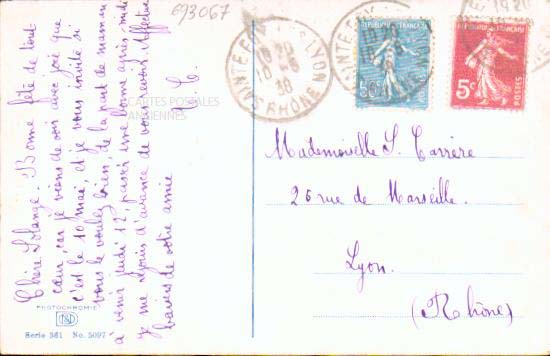 693067
Chère Solange. Bonne fête de tout
cœur, car je viens de voir avec joie que
c'est le 10 mai, et je vous invite si
vous le voulez bien, de la part de maman
à venir jeudi 12, passer une bonne après-midi
Je me réjouis d'avance de vous revoir. Affectueux
baisers de votre amie
S. C.
CARTES POSTALES
ANCIENNES
PHOTOCHROMIE
Serie 361 No. 5097
LYON
RHÔNE
REPUBLIQUE FRANÇAISE
REPUBLIQUE FRANÇAISE
5c
POSTES
Mademoiselle S. Carrère
26 rue de Marseille.
Lyon.
(Rhône)